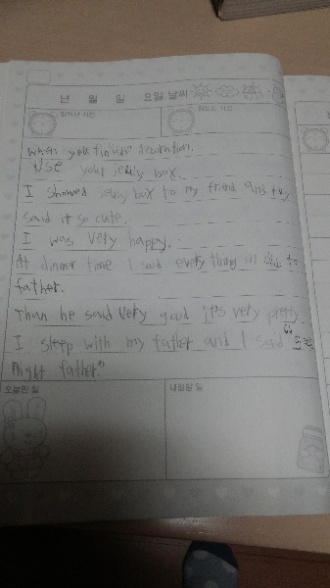 년 월 일 요일 날씨
일어난 시간 잠드는 시간
When you finish decoration,
Use your jelly box.
I showed my box to my friend and they
said it so cute.
I was very happy.
At dinner time I said every thing in to
father.
Than he said very good it's very pretty
I sleep with my father and I said "
night father."
오늘한일 내일할일